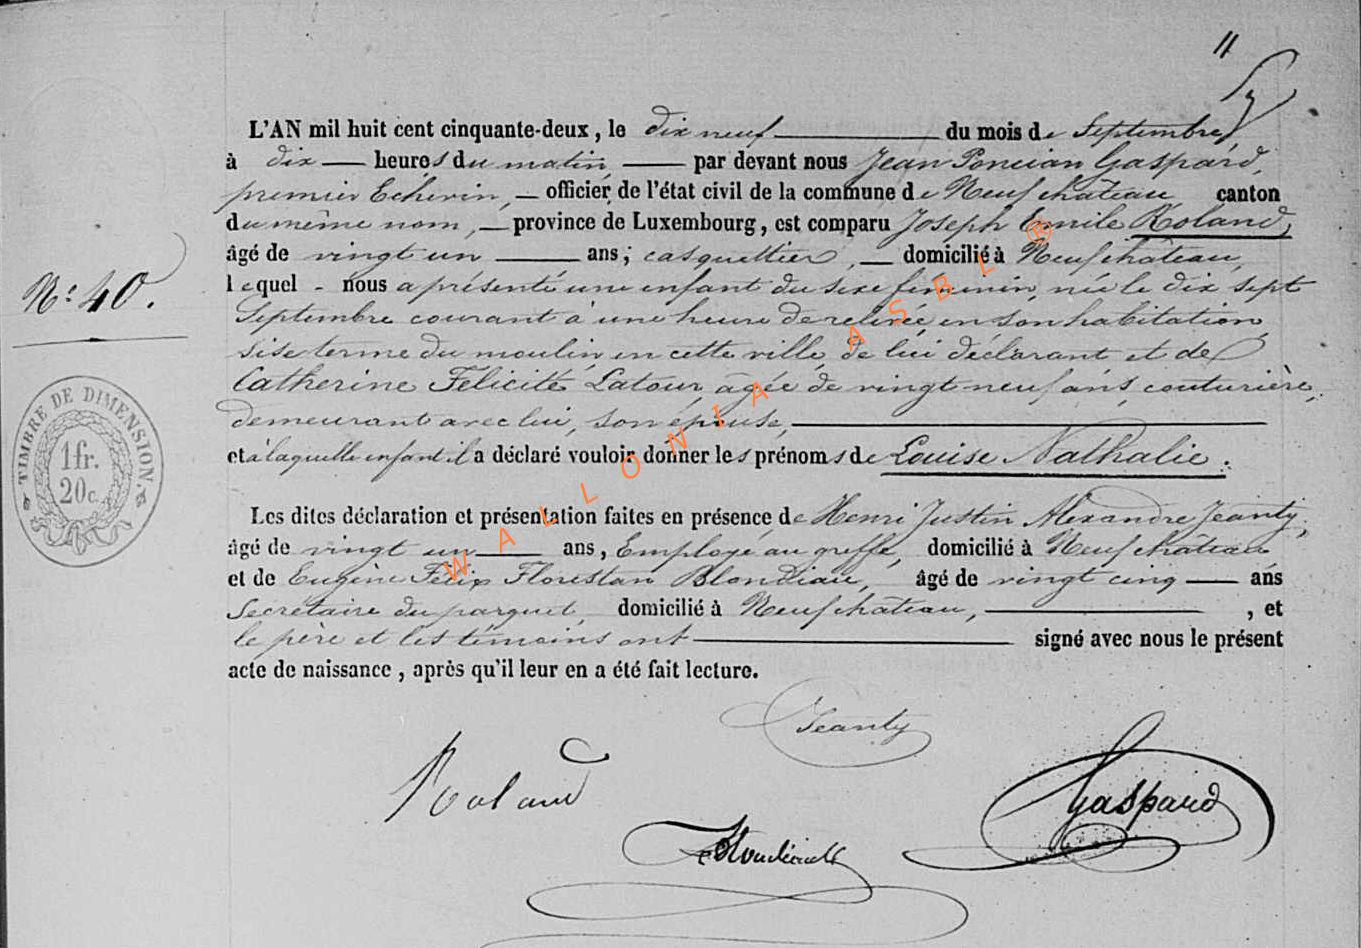 11
L'AN mil huit cent cinquante-deux, le dix neuf du mois de Septembre
à dix heures du matin, par devant nous Jean Poncian Gaspard,
premier Echevin, officier de l'état civil de la commune de Neufchateau canton
du même nom, province de Luxembourg, est comparu Joseph Emile Roland,
âgé de vingt un ans; casquettier, domicilié à Neufchâteau,
lequel nous a présenté une enfant du sexe féminin, née le dix sept
Septembre courant à une heure de relevée, en son habitation
sise terme du moulin, en cette ville, de lui déclarant et de
Catherine Félicité Latour, agée de vingt neuf ans, couturière,
demeurant avec lui, son épouse,
N° 40.
et à laquelle enfant il a déclaré vouloir donner les prénoms de Louise Nathalie.
TIMBRE DE DIMENSION
1fr.
20c.
Les dites déclaration et présentation faites en présence de Henri Justin Alexandre Jeanty,
âgé de vingt un ans, Employé au greffe, domicilié à Neufchâteau
et de Eugène Félix Florestan Blondiau, âgé de vingt cinq ans
Secrétaire du parquet, domicilié à Neufchâteau, , et
le père et les témoins ont signé avec nous le présent
acte de naissance, après qu'il leur en a été fait lecture.
Jeanty
Roland
Gaspard
WALLONIA ASBL ®